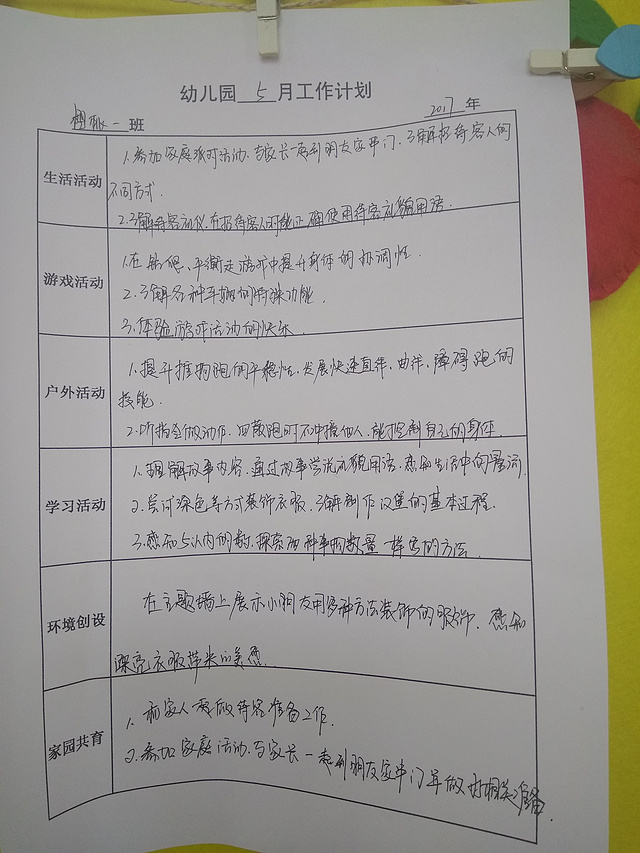 幼儿园 5 月工作计划
一班
2017年
生活活动
1.参加家庭派对活动,与家长一起到朋友家串门,了解招待客人的
不同方式.
2.了解待客礼仪,在招待客人时能正确使用待客礼貌用语.
游戏活动
1.在钻爬、平衡走游戏中提升身体的协调性.
2.了解各种车辆的特殊功能.
3.体验游戏活动的快乐.
户外活动
1.提升推物跑的平稳性,发展快速直线、曲线、障碍跑的
技能.
2.听指令做动作,四散跑时不冲撞他人,能控制自己的身体.
学习活动
1.理解故事内容,通过故事学说礼貌用语,感知生活中的量词.
2.尝试涂色等方式装饰衣服,了解制作汉堡的基本过程.
3.感知5以内的数,探索两种事物数量一样多的方法.
环境创设
在主题墙上展示小朋友用多种方法装饰的服饰,感知
漂亮衣服带来的美感.
家园共育
1.和家人一起做待客准备工作.
2.参加家庭活动,与家长一起到朋友家串门并做好相关准备.